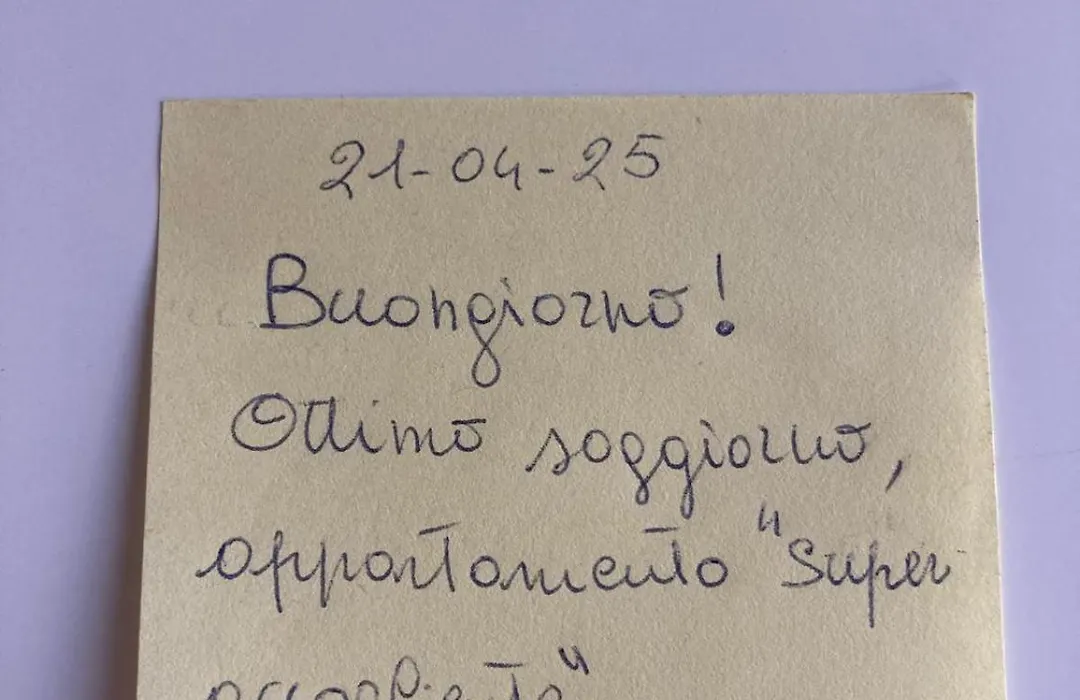 21-04-25
Buongiorno!
Ottimo soggiorno,
appartamento "Super
accogliente"